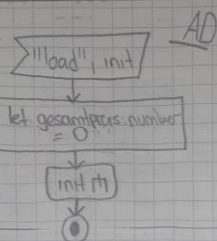 AD
"load", init
let gesamtpreis:number
= 0
init